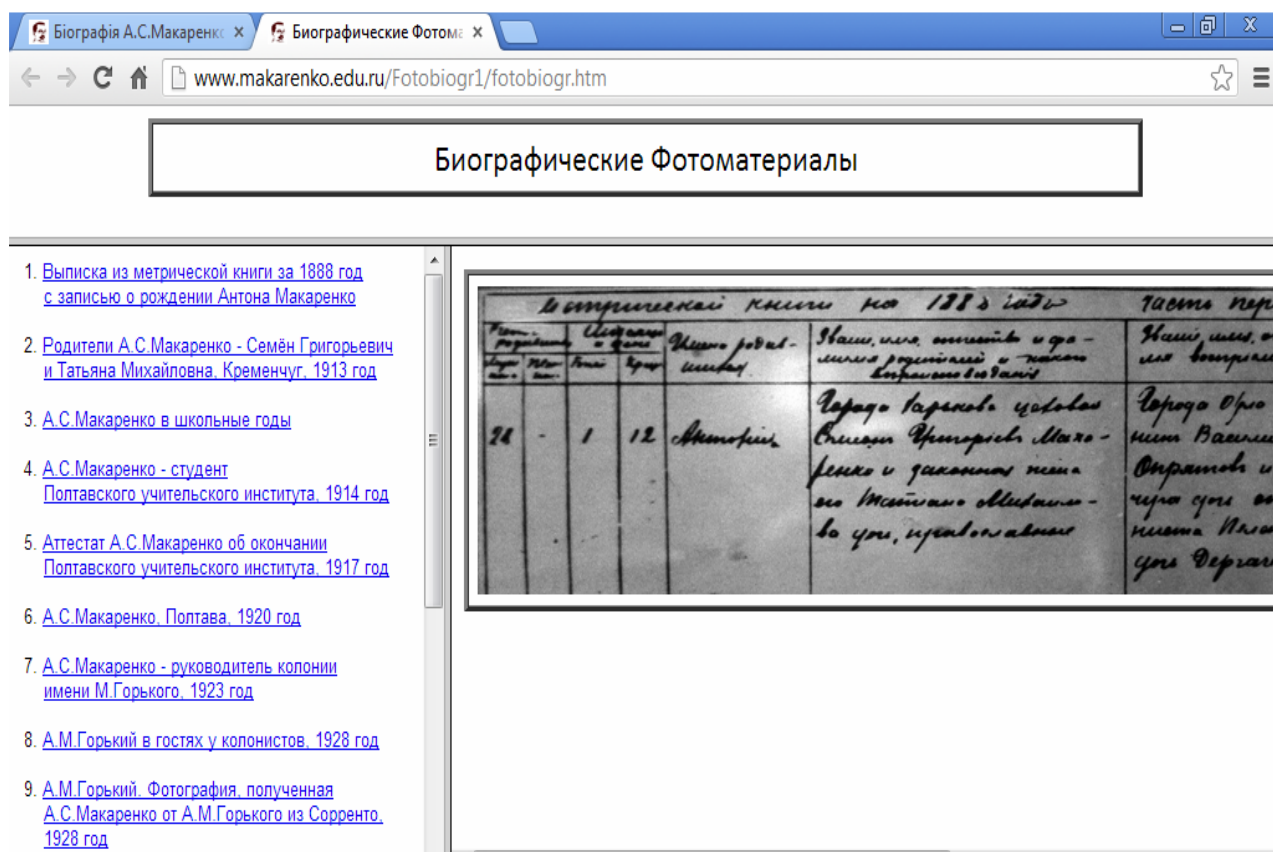 Біографія А.С.Макаренко
Биографические Фотома
www.makarenko.edu.ru/Fotobiogr1/fotobiogr.htm
Биографические Фотоматериалы
1. Выписка из метрической книги за 1888 год
с записью о рождении Антона Макаренко
2. Родители А.С.Макаренко - Семён Григорьевич
и Татьяна Михайловна, Кременчуг, 1913 год
3. А.С.Макаренко в школьные годы
4. А.С.Макаренко - студент
Полтавского учительского института, 1914 год
5. Аттестат А.С.Макаренко об окончании
Полтавского учительского института, 1917 год
6. А.С.Макаренко, Полтава, 1920 год
7. А.С.Макаренко - руководитель колонии
имени М.Горького, 1923 год
8. А.М.Горький в гостях у колонистов, 1928 год
9. А.М.Горький. Фотография, полученная
А.С.Макаренко от А.М.Горького из Сорренто,
1928 год
метрической книги на 1888 годъ часть пер
Имена родив-
Званіе, имя, отчество и фа-
милія родителей и какого
вѣроисповѣданія
28 - 1 12 Антоній
Города Харькова цеховой
Григорьевъ Мака-
ренко и законная жена
его Татьяна Михайло-
ва православные
Города